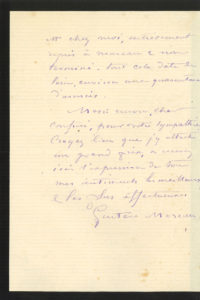 est chez moi, entièrement
repris à nouveau & non
terminé. tout cela date de
loin, environ une quarantaine
d'années.
Merci encore, cher
confrère, pour votre sympathie
Croyez bien que j'y attache
un grand prix, & recevez
ici l'expression de tous
mes sentiments les meilleurs
& les plus affectueux
Gustave Moreau